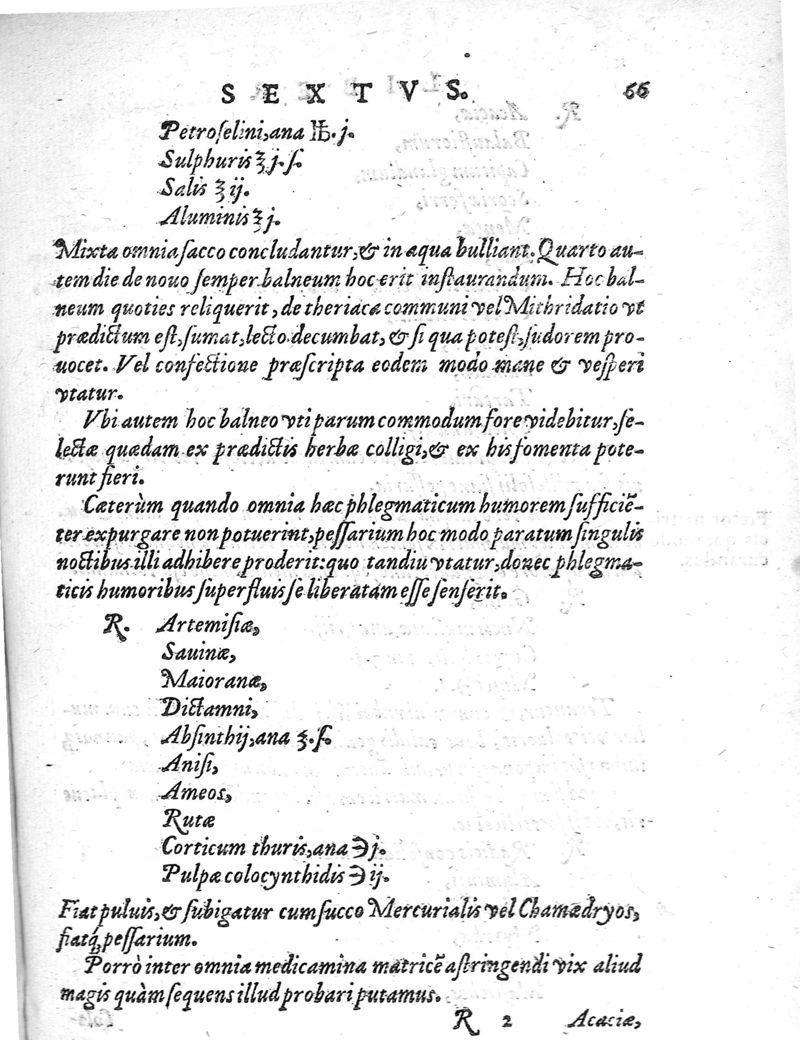 SEXTVS. 66
Petroſelini, ana ℔. j.
Sulphuris ʒ j. ſ.
Salis ʒ ij.
Aluminis ʒ j.
Mixta omnia ſacco concludantur, & in aqua bulliant. Quarto au-
tem die de nouo ſemper balneum hoc erit inſtaurandum. Hoc bal-
neum quoties reliquerit, de theriaca communi vel Mithridatio vt
prædictum eſt, ſumat, lecto decumbat, & ſi qua poteſt, ſudorem pro-
uocet. Vel confectione præſcripta eodem modo mane & veſperi
vtatur.
Vbi autem hoc balneo vti parum commodum fore videbitur, ſe-
lectæ quædam ex prædictis herbæ colligi, & ex his fomenta pote-
runt fieri.
Cæterùm quando omnia hæc phlegmaticum humorem ſufficiē-
ter expurgare non potuerint, peſſarium hoc modo paratum ſingulis
noctibus illi adhibere proderit: quo tandiu vtatur, donec phlegma-
ticis humoribus ſuperfluis ſe liberatam eſſe ſenſerit.
R. Artemiſiæ,
Sauinæ,
Maioranæ,
Dictamni,
Abſinthij, ana ʒ. ſ.
Aniſi,
Ameos,
Rutæ
Corticum thuris, ana ℈ j.
Pulpæ colocynthidis ℈ ij.
Fiat puluis, & ſubigatur cum ſucco Mercurialis vel Chamædryos,
fiatq́; peſſarium.
Porrò inter omnia medicamina matricē aſtringendi vix aliud
magis quàm ſequens illud probari putamus.
R 2 Acaciæ,